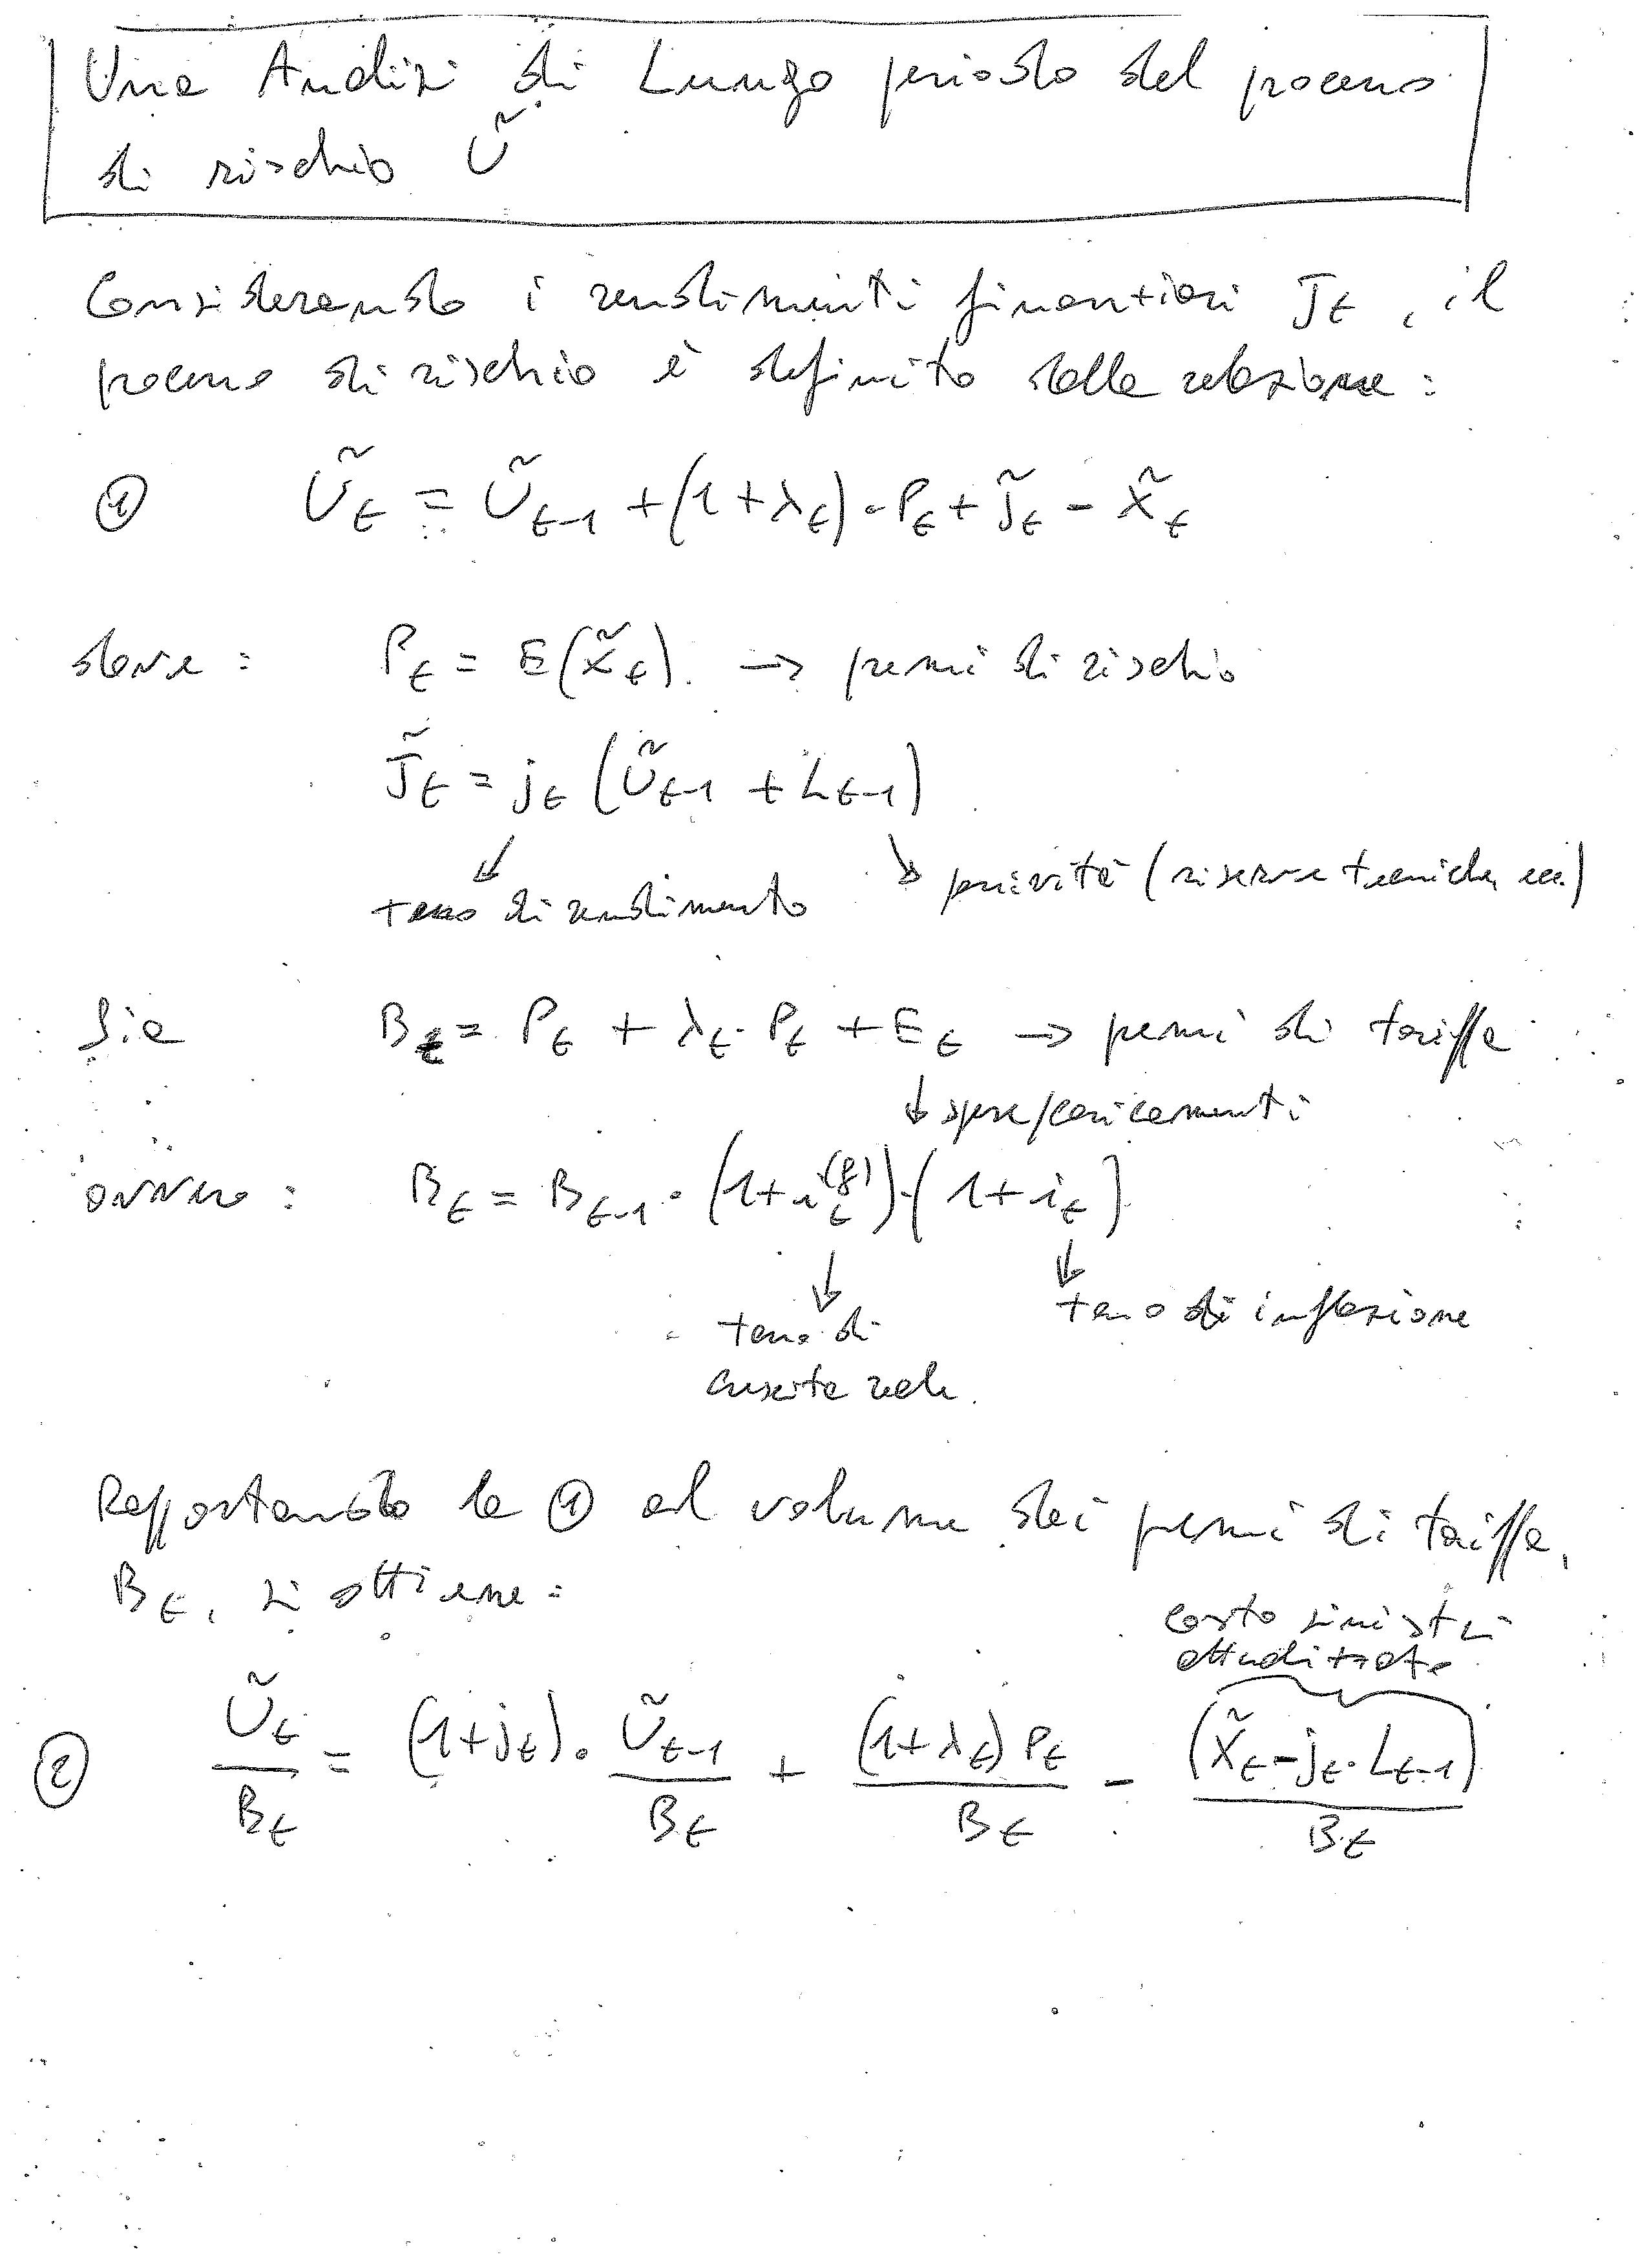 Una Analisi di Lungo periodo del processo
di rischio Ũ
Considerando i rendimenti finanziari J_t, il
processo di rischio è definito dalla relazione:
① Ũ_t = Ũ_{t-1} + (1+λ_t)·P_t + J̃_t - X̃_t
dove: P_t = E(X̃_t). → premi di rischio
J̃_t = j_t (Ũ_{t-1} + L_{t-1})
↓ tasso di rendimento ↘ passività (riserve tecniche, ecc.)
Sia B_t = P_t + λ_t·P_t + E_t → premi di tariffa
↓ spese/caricamenti
ovvero: B_t = B_{t-1}·(1+i_t^{(g)})·(1+i_t)
↓ ↓
tasso di tasso di inflazione
crescita reale.
Rapportando la ① al volume dei premi di tariffa,
B_t, si ottiene:
costo sinistri
attualizzato
② Ũ_t/B_t = (1+j_t)·Ũ_{t-1}/B_t + (1+λ_t)P_t/B_t - (X̃_t - j_t·L_{t-1})/B_t